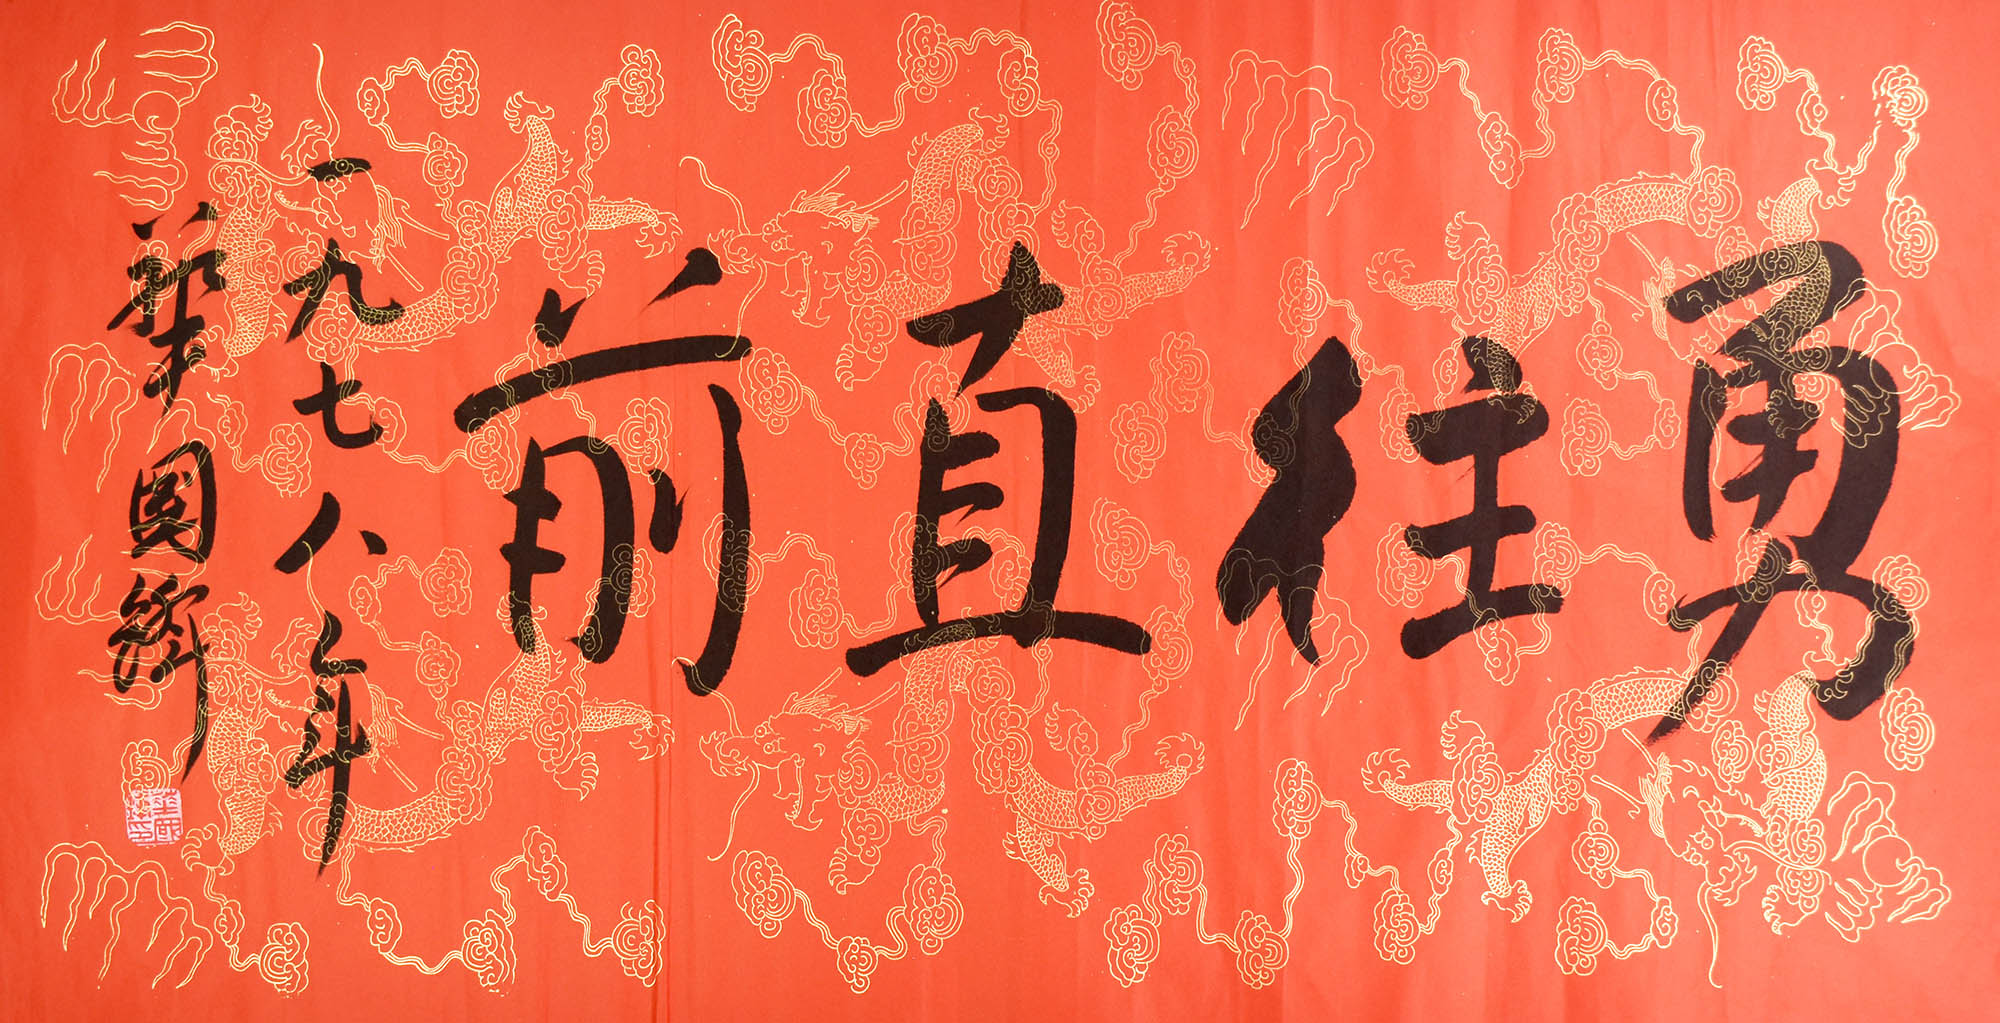 勇往直前
一九七八年
華国鋒